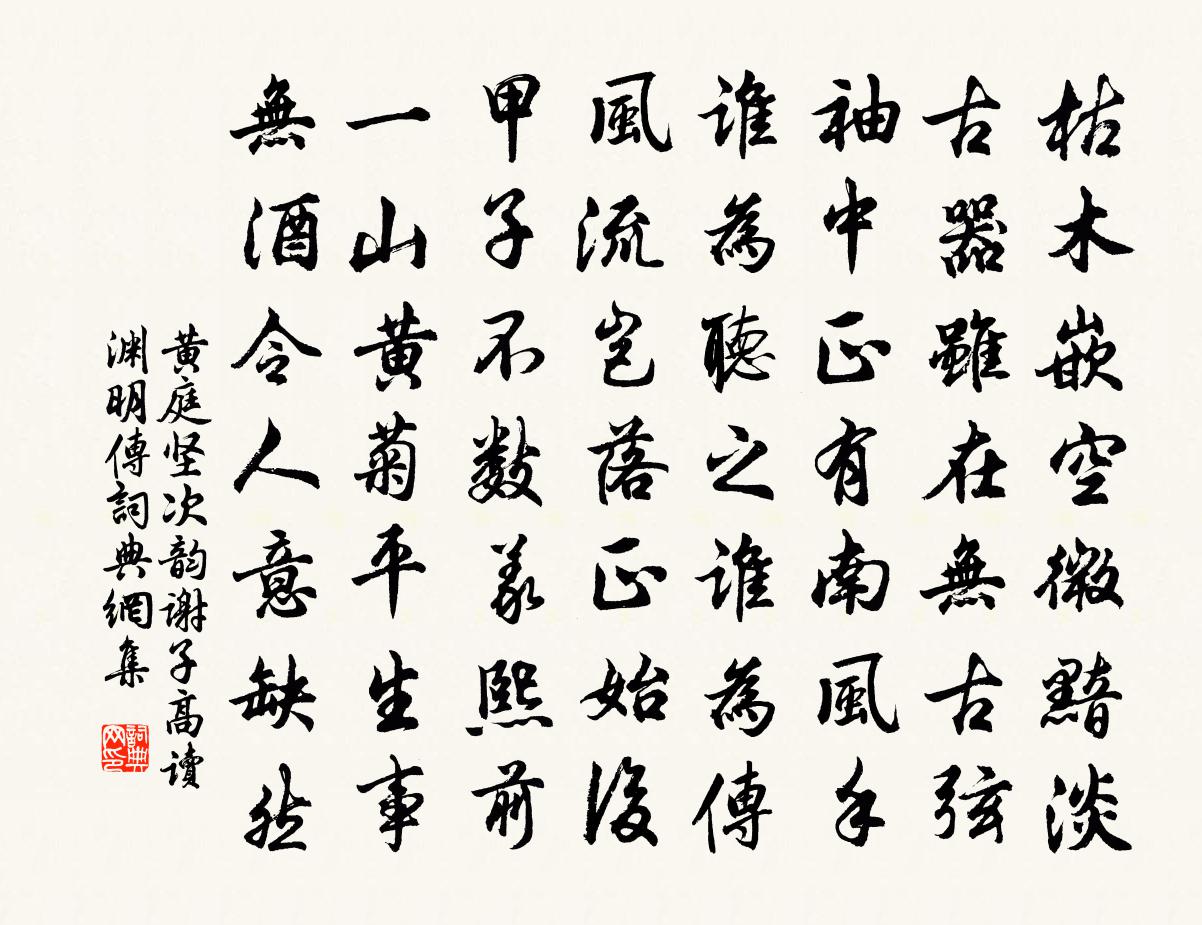 枯木嵌空微黯淡
古器雖在無古弦
袖中正有南風手
誰為聽之誰為傳
風流豈落正始後
甲子不數義熙前
一山黃菊平生事
無酒令人意缺然
黃庭坚次韵謝子高讀
渊明傳詞典網集
詞典网印